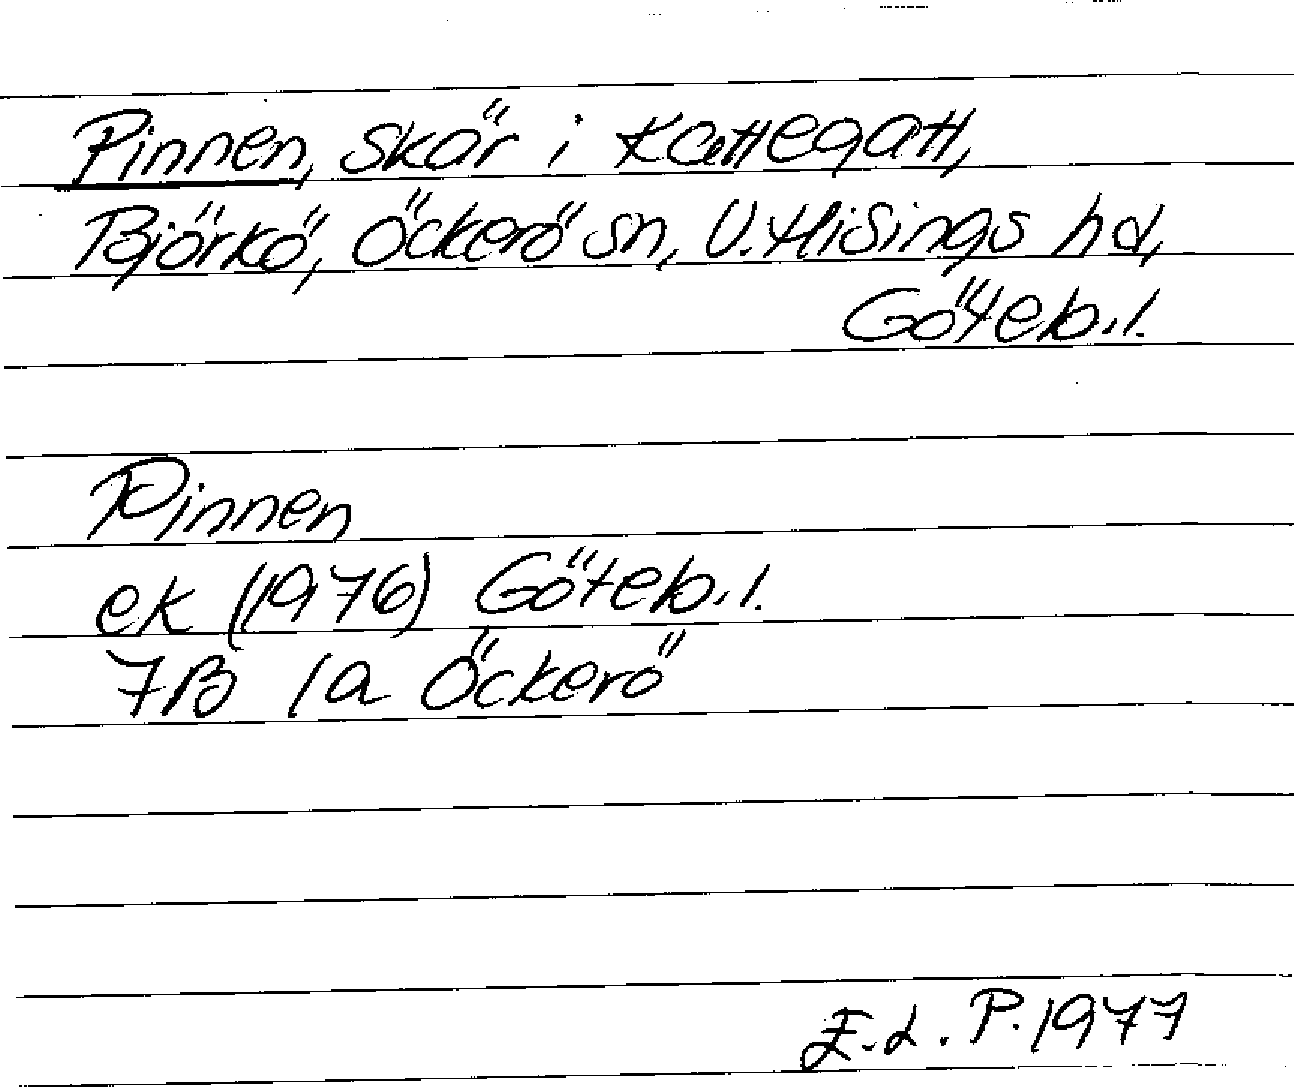 Pinnen, skär i Kattegatt,
Björkö, Öckerö sn, V. Hisings hd,
Göteb.l.
Pinnen
ek (1976) Göteb.l.
7B 1a Öckerö
E.L.P. 1977